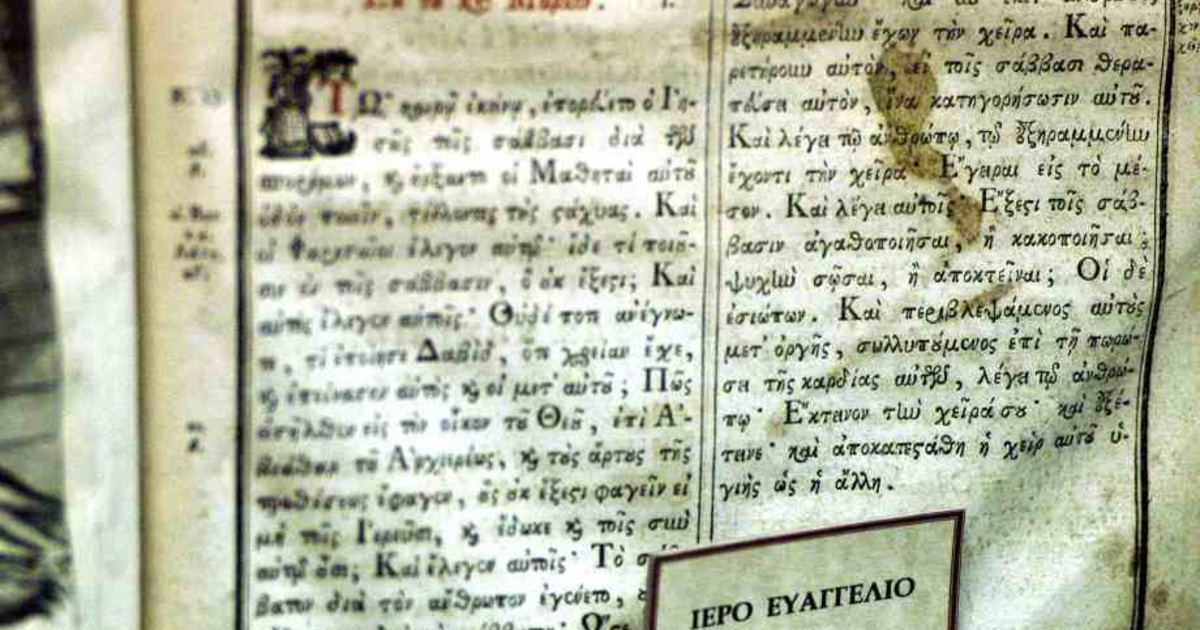 ΤΩ͂ καιρῷ ἐκείνῳ, ἐπορεύετο ὁ Ἰη-
σοῦς τοῖς σάββασι διὰ τῶν
σπορίμων, ϗ ἤρξαντο οἱ Μαθηταὶ αὐτοῦ
ὁδὸν ποιεῖν, τίλλοντες τὰς στάχυας. Καὶ
οἱ Φαρισαῖοι ἔλεγον αὐτῷ· ἴδε τί ποιοῦ-
σιν ἐν τοῖς σάββασιν, ὃ οὐκ ἔξεστι; Καὶ
αὐτὸς ἔλεγεν αὐτοῖς· Οὐδέποτε ἀνέγνω-
τε, τί ἐποίησε Δαβὶδ, ὅτε χρείαν ἔσχε,
ϗ ἐπείνασεν αὐτὸς ϗ οἱ μετ' αὐτοῦ; Πῶς
εἰσῆλθεν εἰς τὸν οἶκον τοῦ Θεοῦ, ἐπὶ Ἀ-
βιάθαρ τοῦ Ἀρχιερέως, ϗ τοὺς ἄρτους τῆς
προθέσεως ἔφαγεν, οὓς οὐκ ἔξεστι φαγεῖν εἰ
μὴ τοῖς Ἱερεῦσι, ϗ ἔδωκε ϗ τοῖς σὺν
αὐτῷ οὖσι; Καὶ ἔλεγεν αὐτοῖς· Τὸ
βατον διὰ τὸν ἄνθρωπον ἐγένετο,
ἐξηραμμένην ἔχων τὴν χεῖρα. Καὶ πα-
ρετήρουν αὐτὸν, εἰ τοῖς σάββασι θερα-
πεύσει αὐτὸν, ἵνα κατηγορήσωσιν αὐτοῦ.
Καὶ λέγει τῷ ἀνθρώπῳ, τῷ ἐξηραμμένην
ἔχοντι τὴν χεῖρα· Ἔγειραι εἰς τὸ μέ-
σον. Καὶ λέγει αὐτοῖς· Ἔξεστι τοῖς σάβ-
βασιν ἀγαθοποιῆσαι, ἢ κακοποιῆσαι;
ψυχὴν σῶσαι, ἢ ἀποκτεῖναι; Οἱ δὲ
ἐσιώπων. Καὶ περιβλεψάμενος αὐτοὺς
μετ' ὀργῆς, συλλυπούμενος ἐπὶ τῇ πωρώ-
σει τῆς καρδίας αὐτῶν, λέγει τῷ ἀνθρώ-
πῳ· Ἔκτεινον τὴν χεῖρά σου· καὶ ἐξέ-
τεινε· καὶ ἀποκατεστάθη ἡ χεὶρ αὐτοῦ ὑ-
γιὴς ὡς ἡ ἄλλη.
ΙΕΡΟ ΕΥΑΓΓΕΛΙΟ